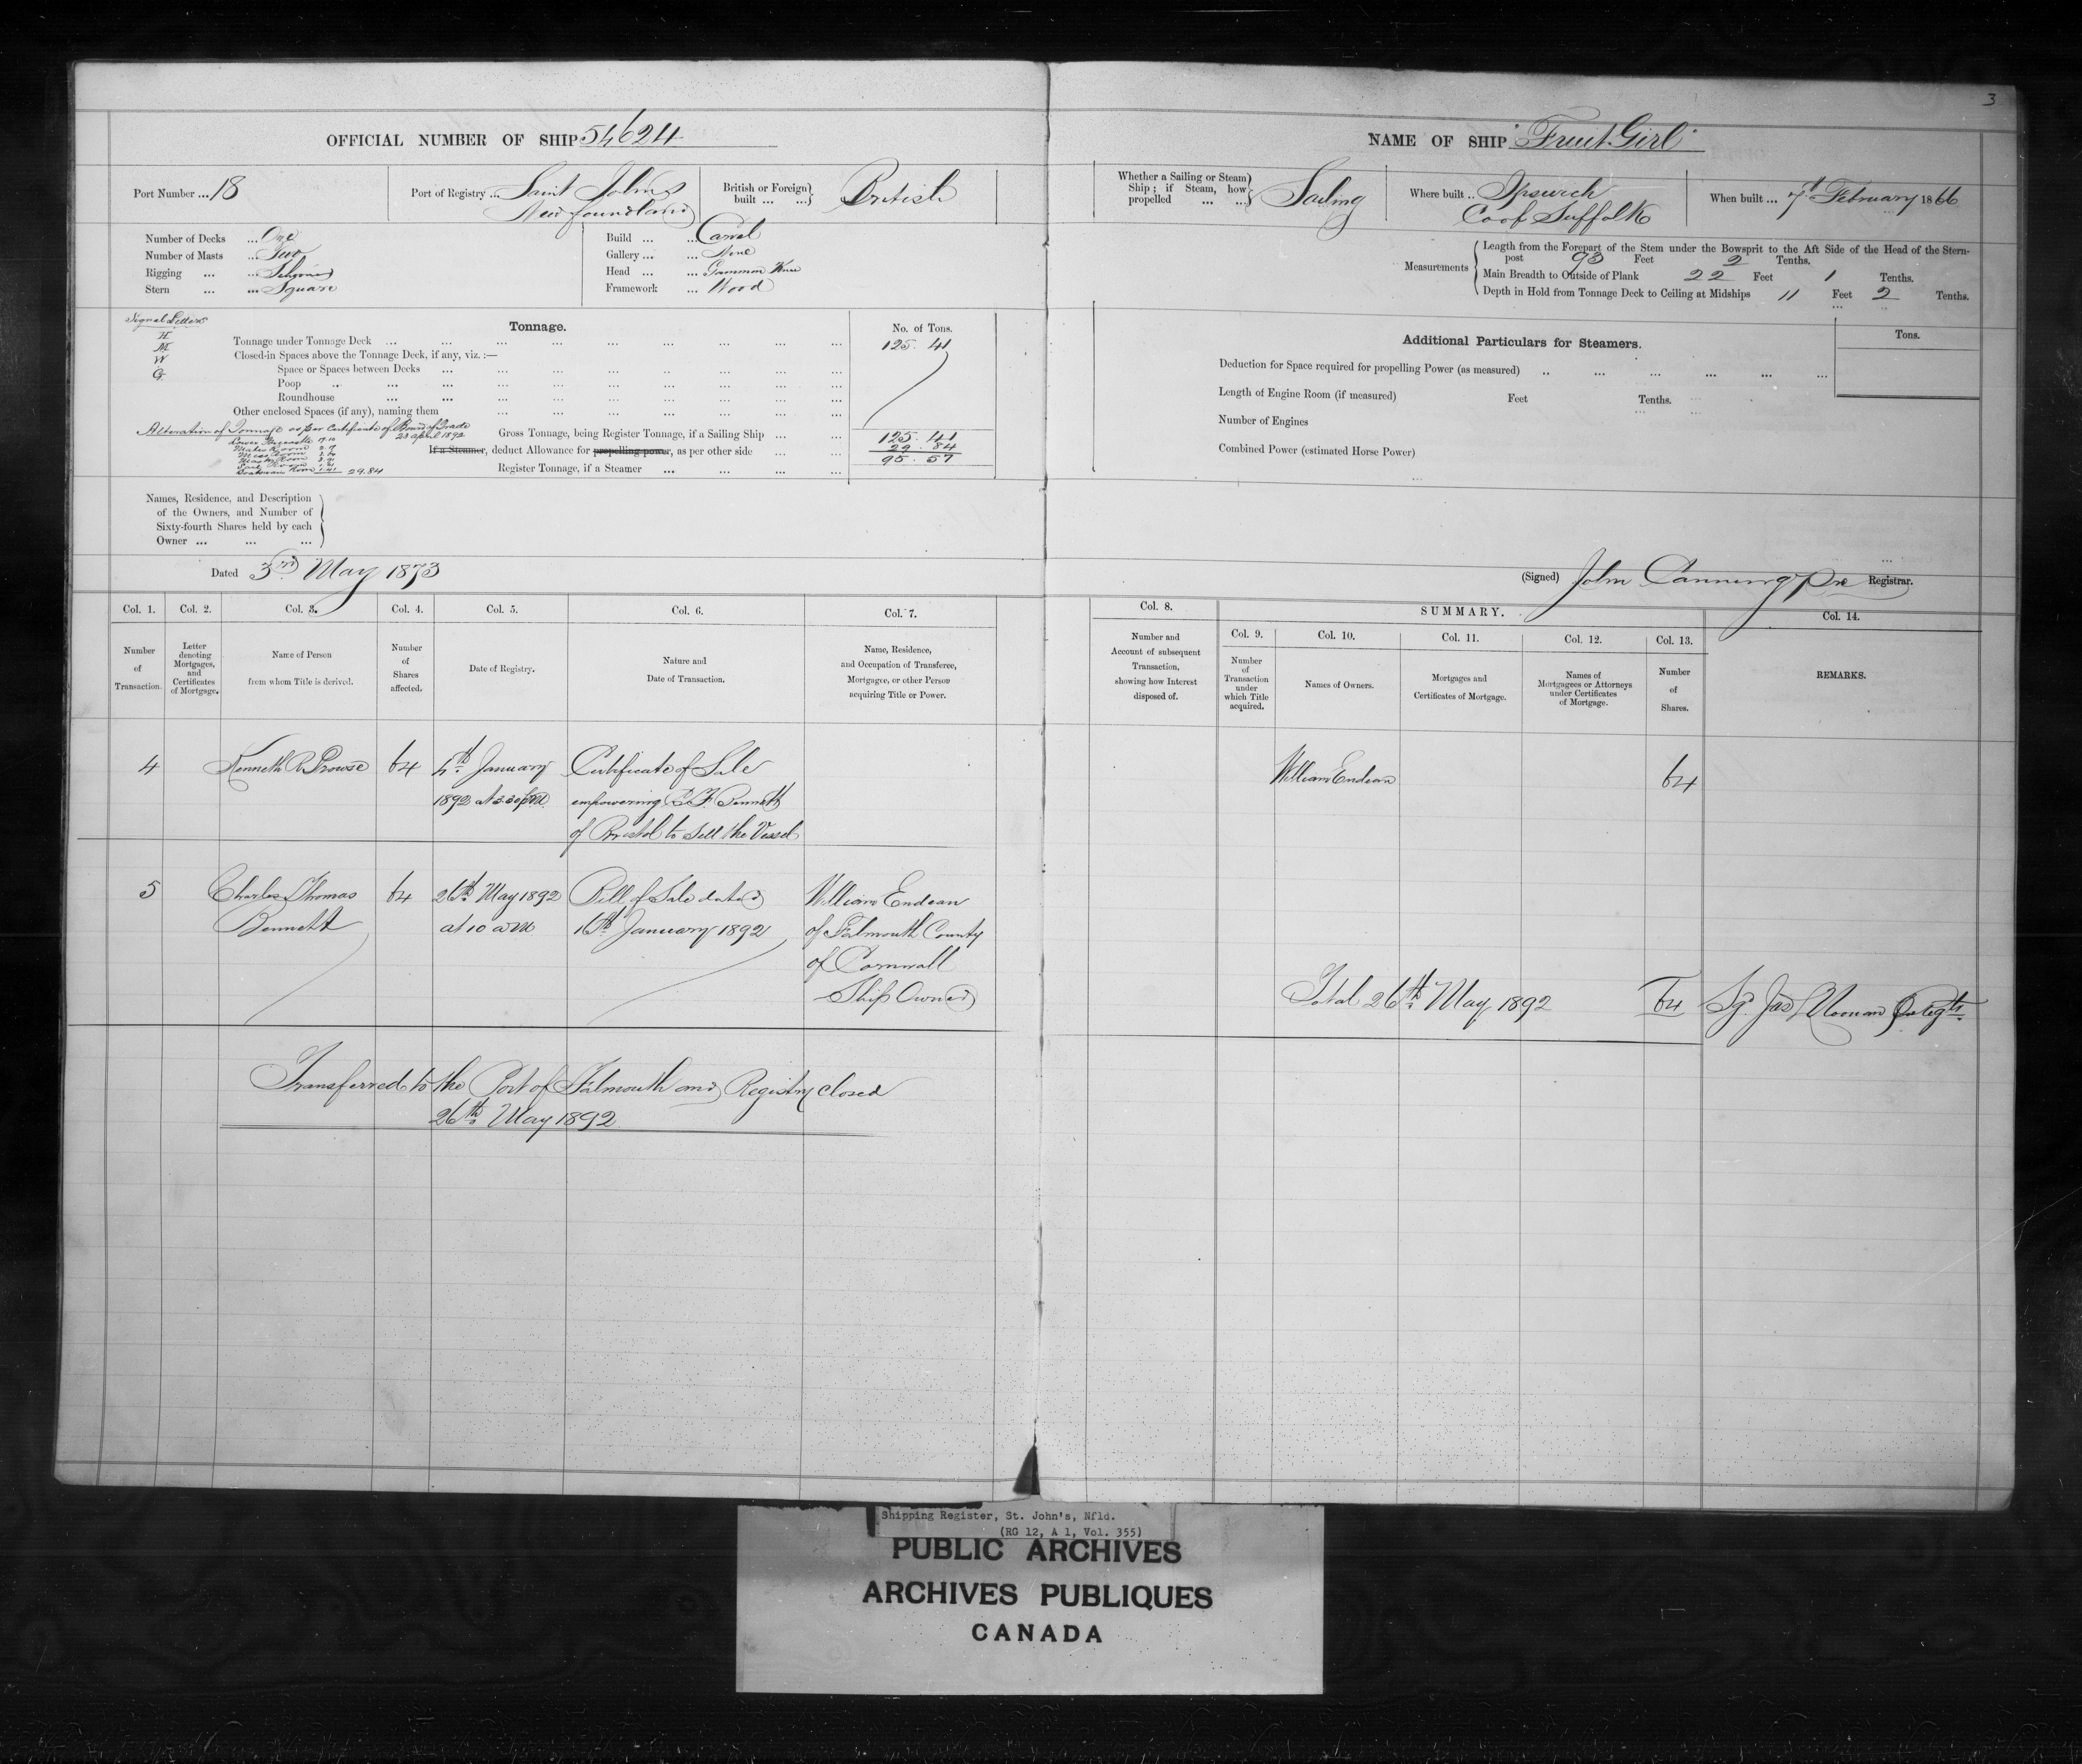 3
OFFICIAL NUMBER OF SHIP 54624
NAME OF SHIP "Fruit Girl"
Port Number ... 18
Port of Registry ... Saint Johns
Newfoundland
British or Foreign built ... ... British
Whether a Sailing or Steam Ship; if Steam, how propelled ... ... Sailing
Where built .. Ipswich
Co of Suffolk
When built ... 7th February 1866
Number of Decks ... One
Number of Masts ... Two
Rigging ... ... Schooner
Stern ... ... Square
Build ... ... Carvel
Gallery ... ... None
Head ... ... Gammon Knee
Framework ... Wood
Measurements
Length from the Forepart of the Stem under the Bowsprit to the Aft Side of the Head of the Stern-
post 93 Feet 2 Tenths.
Main Breadth to Outside of Plank 22 Feet 1 Tenths.
Depth in Hold from Tonnage Deck to Ceiling at Midships 11 Feet 2 Tenths.
Signal Letters
H
M
W
G
Tonnage.
No. of Tons.
Tonnage under Tonnage Deck ... 125. 41
Closed-in Spaces above the Tonnage Deck, if any, viz. :—
Space or Spaces between Decks
Poop
Roundhouse
Other enclosed Spaces (if any), naming them
Alteration of Tonnage as per Certificate of Board of Trade
23 April 1892
Lower Forecastle 17.10
Mates Room
Mess Room
Masters Room
Sail Room
Boatswain Room
29.84
Gross Tonnage, being Register Tonnage, if a Sailing Ship ... 125. 41
If a Steamer, deduct Allowance for propelling power, as per other side ... 29. 84
Register Tonnage, if a Steamer ... 95. 57
Additional Particulars for Steamers.
Tons.
Deduction for Space required for propelling Power (as measured)
Length of Engine Room (if measured) Feet Tenths.
Number of Engines
Combined Power (estimated Horse Power)
Names, Residence, and Description
of the Owners, and Number of
Sixty-fourth Shares held by each
Owner ... ... ...
Dated 3rd May 1873
(Signed) John Canning Registrar.
Col. 1. Col. 2. Col. 3. Col. 4. Col. 5. Col. 6. Col. 7.
Number of Transaction.
Letter denoting Mortgages, and Certificates of Mortgage.
Name of Person from whom Title is derived.
Number of Shares affected.
Date of Registry.
Nature and Date of Transaction.
Name, Residence, and Occupation of Transferee, Mortgagee, or other Person acquiring Title or Power.
Col. 8.
Number and Account of subsequent Transaction, showing how Interest disposed of.
SUMMARY.
Col. 9. Col. 10. Col. 11. Col. 12. Col. 13.
Number of Transaction under which Title acquired.
Names of Owners.
Mortgages and Certificates of Mortgage.
Names of Mortgagees or Attorneys under Certificates of Mortgage.
Number of Shares.
Col. 14.
REMARKS.
4 Kenneth R Prowse 64 4th January Certificate of Sale
1892 at 3.30 pm empowering C. T. Bennett
of Bristol to Sell the Vessel
William Endean 64
5 Charles Thomas 64 26th May 1892 Bill of Sale dated William Endean
Bennett at 10 am 16th January 1892 of Falmouth County
of Cornwall
Ship Owner
Total 26th May 1892 64
Transferred to the Port of Falmouth and Registry closed
26th May 1892
Shipping Register, St. John's, Nfld.
(RG 12, A 1, Vol. 355)
PUBLIC ARCHIVES
ARCHIVES PUBLIQUES
CANADA